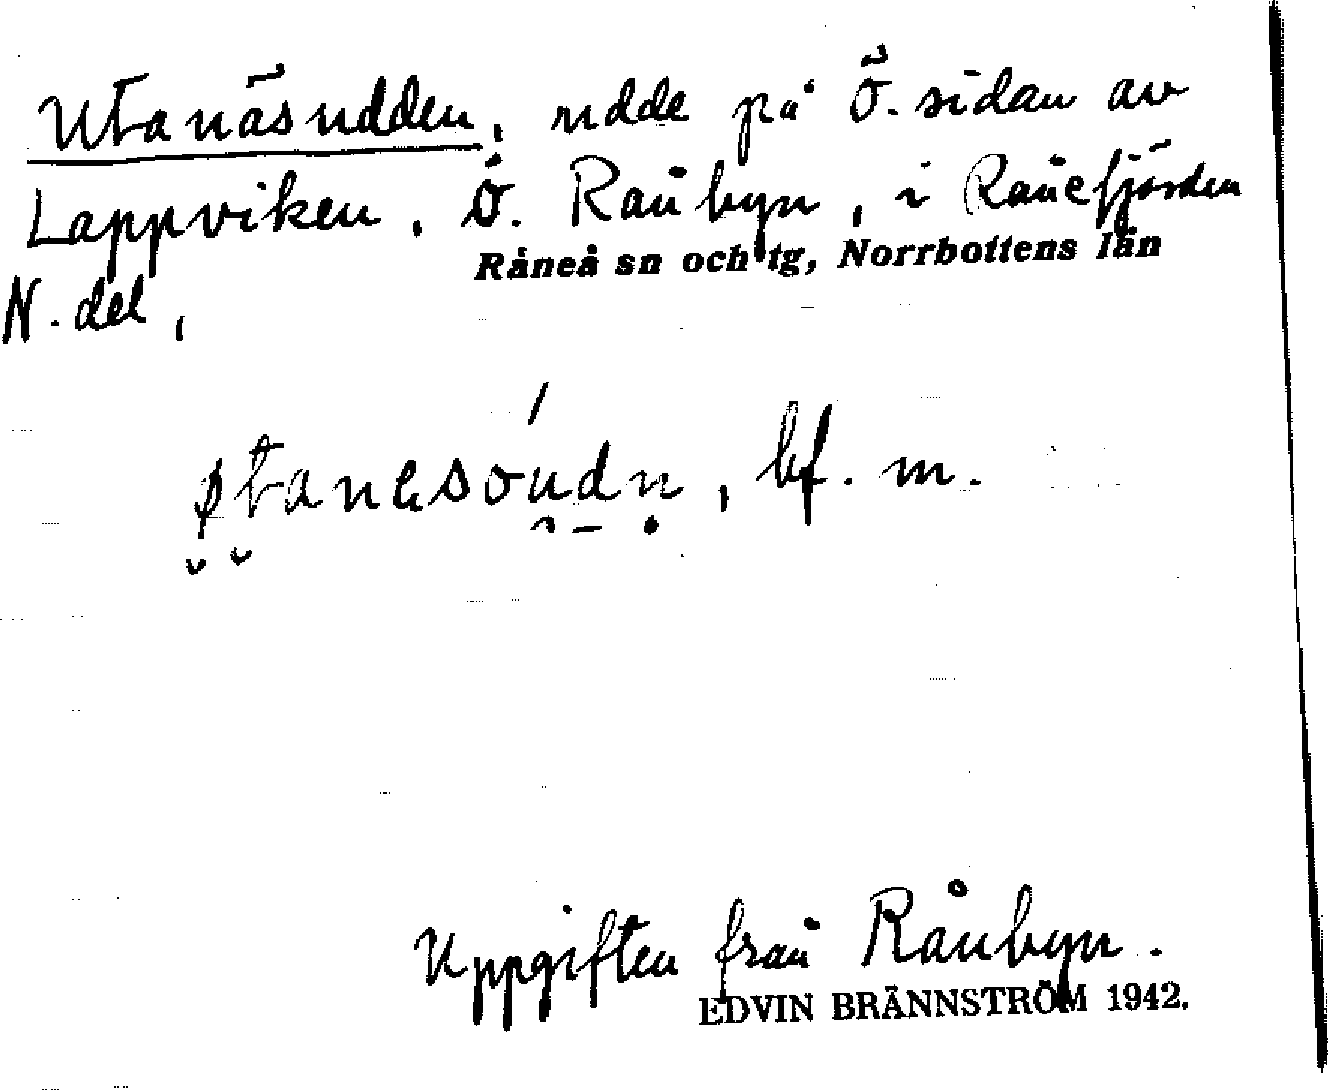 Utanäsudden, udde på Ö. sidan av
Lappviken, Ö. Rånbyn, i Rånefjärden
Råneå sn och tg, Norrbottens län
N. del,
bf. m.
Uppgiften från Rånbyn.
EDVIN BRÄNNSTRÖM 1942.